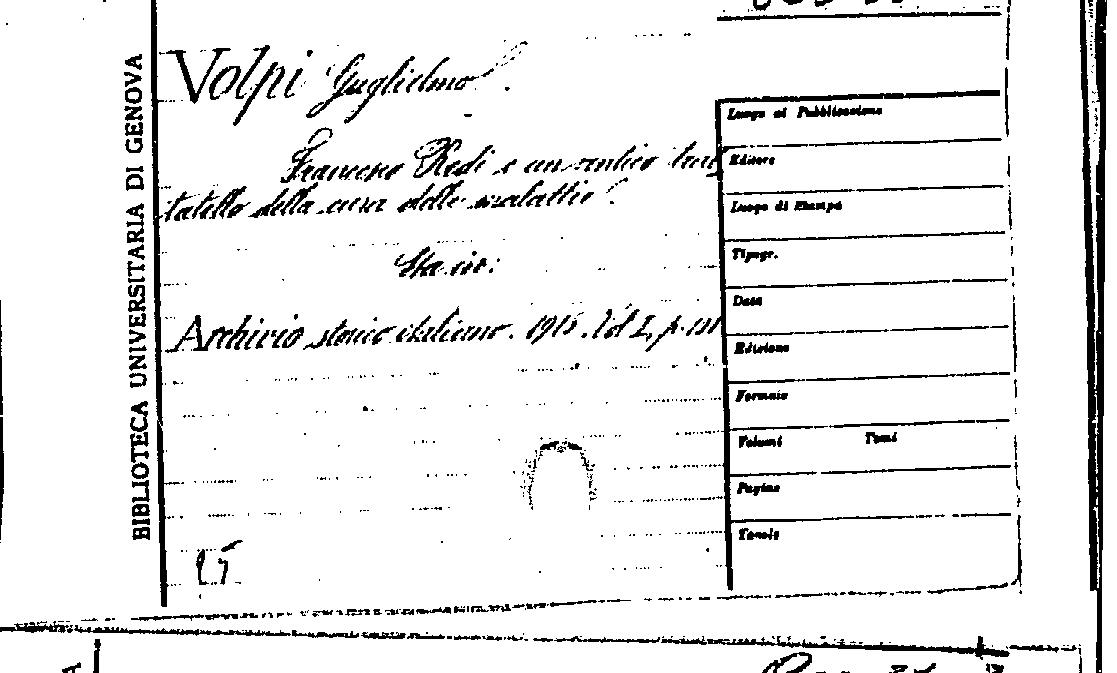 BIBLIOTECA UNIVERSITARIA DI GENOVA
Volpi Guglielmo.
Francesco Redi e un antico
tatello della cura delle malattie.
Sta in:
Archivio storico italiano. 1915. Vol I, p.
Luogo di Pubblicazione
Editore
Luogo di Stampa
Tipogr.
Data
Edizione
Formato
Volumi Tomi
Pagine
Tavole